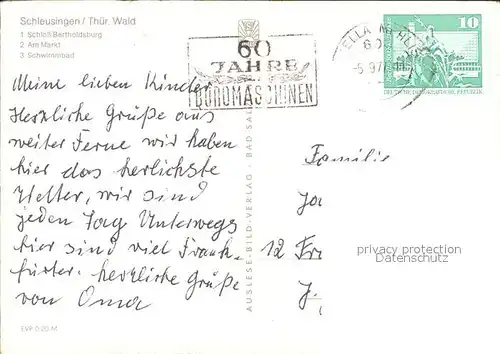 Schleusingen / Thür. Wald
1 Schloß Bertholdsburg
2 Am Markt
3 Schwimmbad
60
JAHRE
BÜROMASCHINEN
ELLA-MEHLIS
10
DEUTSCHE DEMOKRATISCHE REPUBLIK
Meine lieben Kinder
Herzliche Grüße aus
weiter Ferne wir haben
hier das herlichste
Wetter, wir sind
jeden Tag Unterwegs
hier sind viel Frank-
furter. herzliche Grüße
von Oma
AUSLESE-BILD-VERLAG · BAD SAL
Familie
12 Fr
J.
privacy protection
Datenschutz
EVP 0,20 M